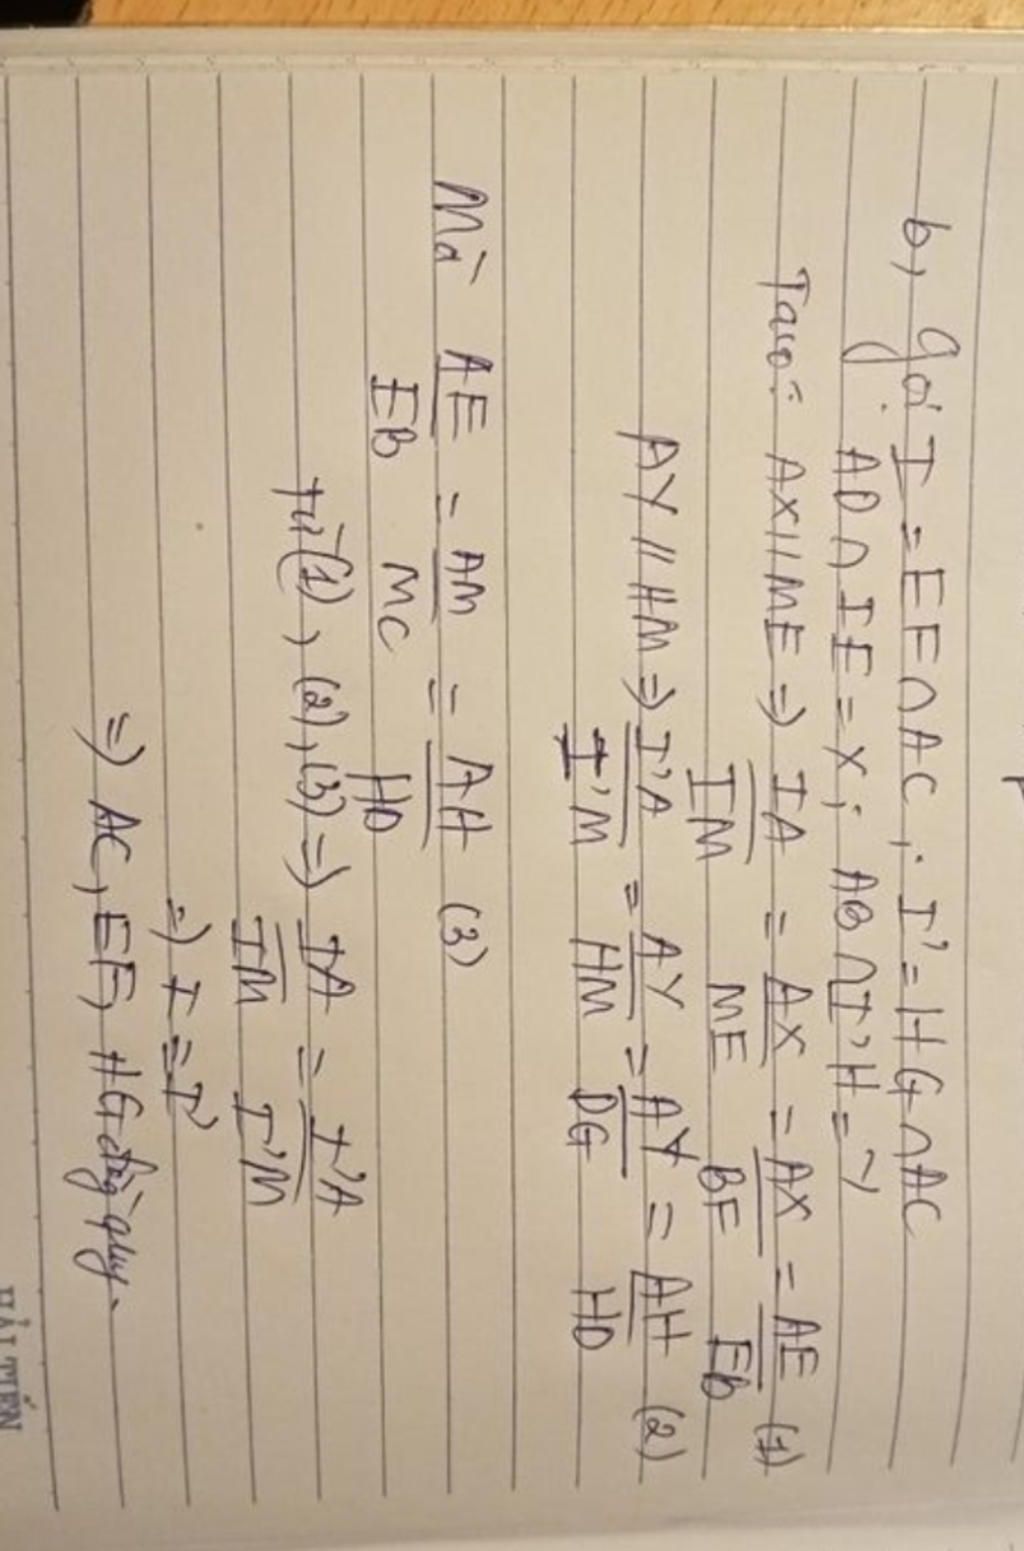 b, gọi I = EF∩AC ; I' = HG∩AC
AD∩IE = X ; AB∩I'H = Y
Taco: AX//ME => IA/IM = AX/ME = AX/BF = AE/EB (1)
AY // HM => I'A/I'M = AY/HM = AY/DG = AH/HD (2)
Mà AE/EB = AM/MC = AH/HD (3)
từ (1), (2), (3) => IA/IM = I'A/I'M
=> I ≡ I'
=> AC, EF, HG đồng quy.
HẢI TIẾN